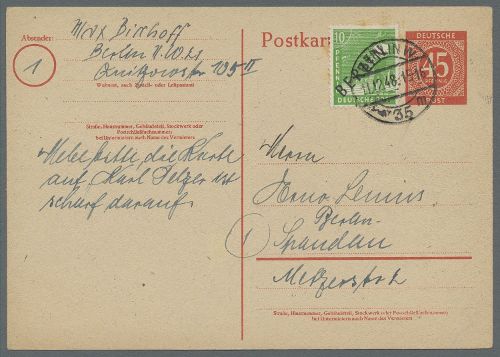 Absender:
Max Bischoff
Berlin N.W. 21
Quitzowstr 105 II
Wohnort, auch Zustell- oder Leitpostamt
1
Straße, Hausnummer, Gebäudeteil, Stockwerk oder
Postschließfachnummer;
bei Untermietern auch Name des Vermieters
Hebe bitte die Karte
auf, Karl Pelzer ist
scharf darauf
Postkarte
10
PFENNIG
DEUTSCHE POST
DEUTSCHE
45
POST
BERLIN NW
48
35
Herrn
Arno
Berlin-
1
Spandau
Metzerstr 6
Straße, Hausnummer, Gebäudeteil, Stockwerk oder Postschließfachnummer;
bei Untermietern auch Name des Vermieters